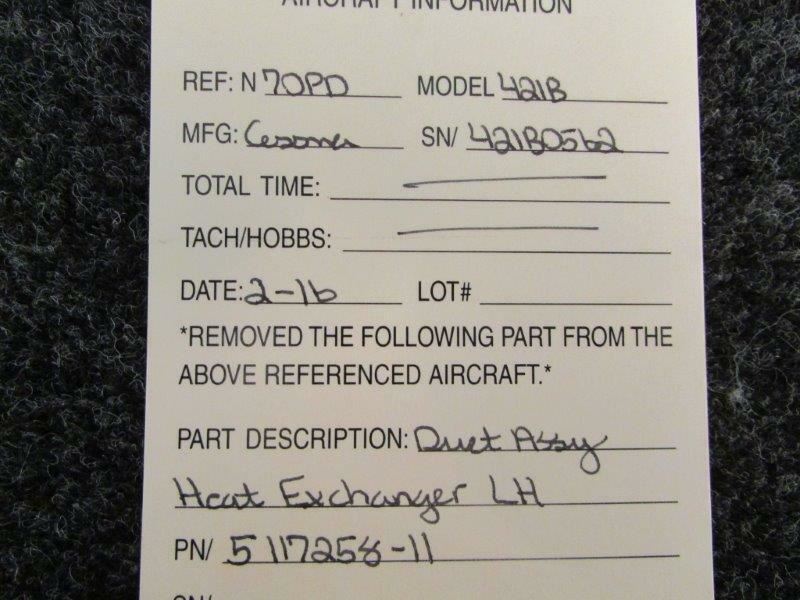 AIRCRAFT INFORMATION
REF: N 70PD MODEL 421B
MFG: Cessna SN/ 421B0562
TOTAL TIME:
TACH/HOBBS:
DATE: 2-16 LOT#
*REMOVED THE FOLLOWING PART FROM THE
ABOVE REFERENCED AIRCRAFT.*
PART DESCRIPTION: Duct Assy
Heat Exchanger LH
PN/ 5117258-11
SN/